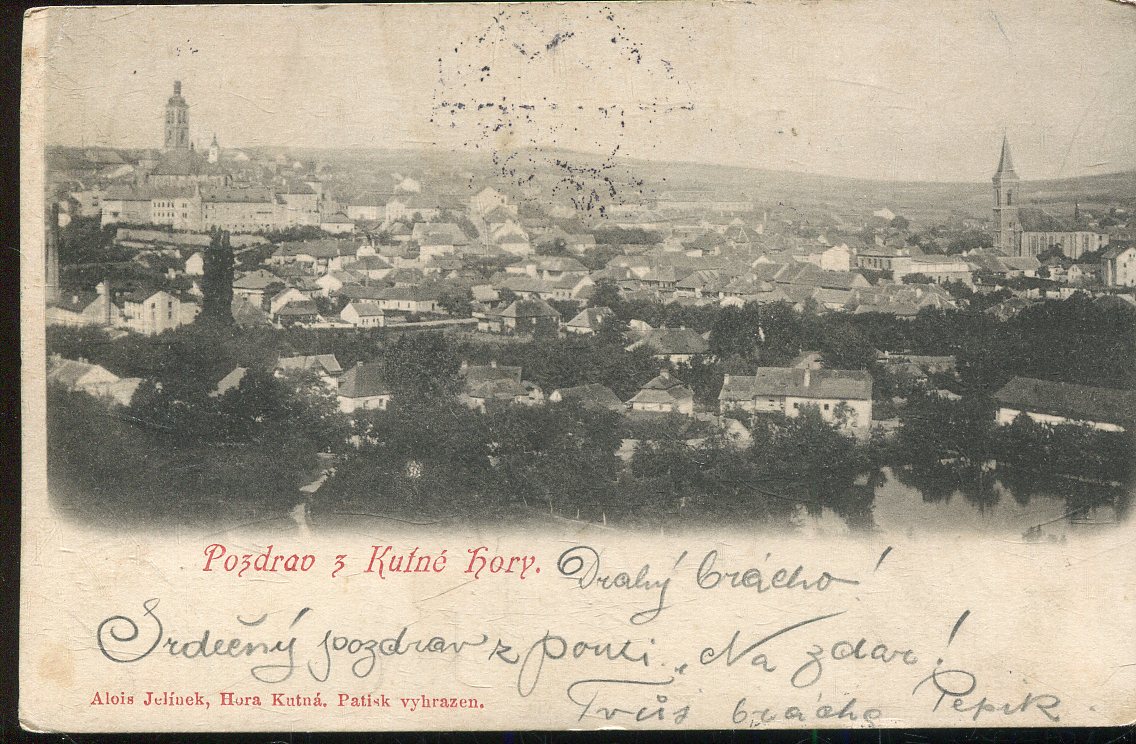 Pozdrav z Kutné Hory.
Drahý brácho!
Srdečný pozdrav z pouti. „Na zdar!
Alois Jelínek, Hora Kutná. Patisk vyhrazen.
Tvůj brácha Pepik.